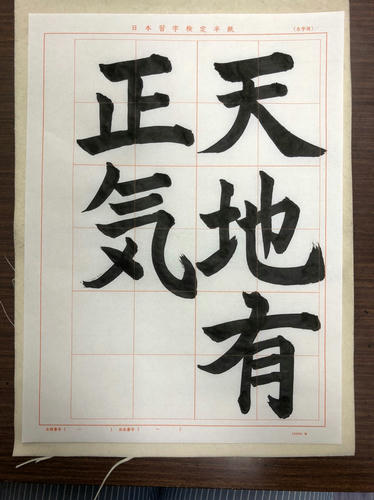 日本習字検定半紙
天地有
正気